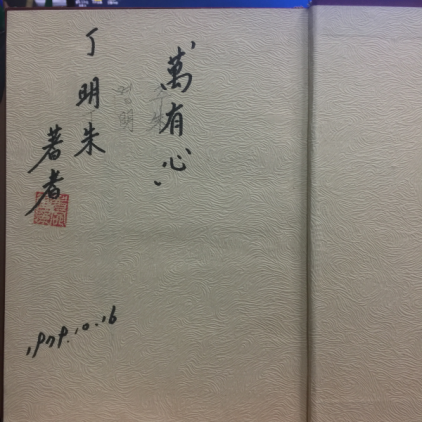 "萬有心"
丁明朱
著者
1979.10.16